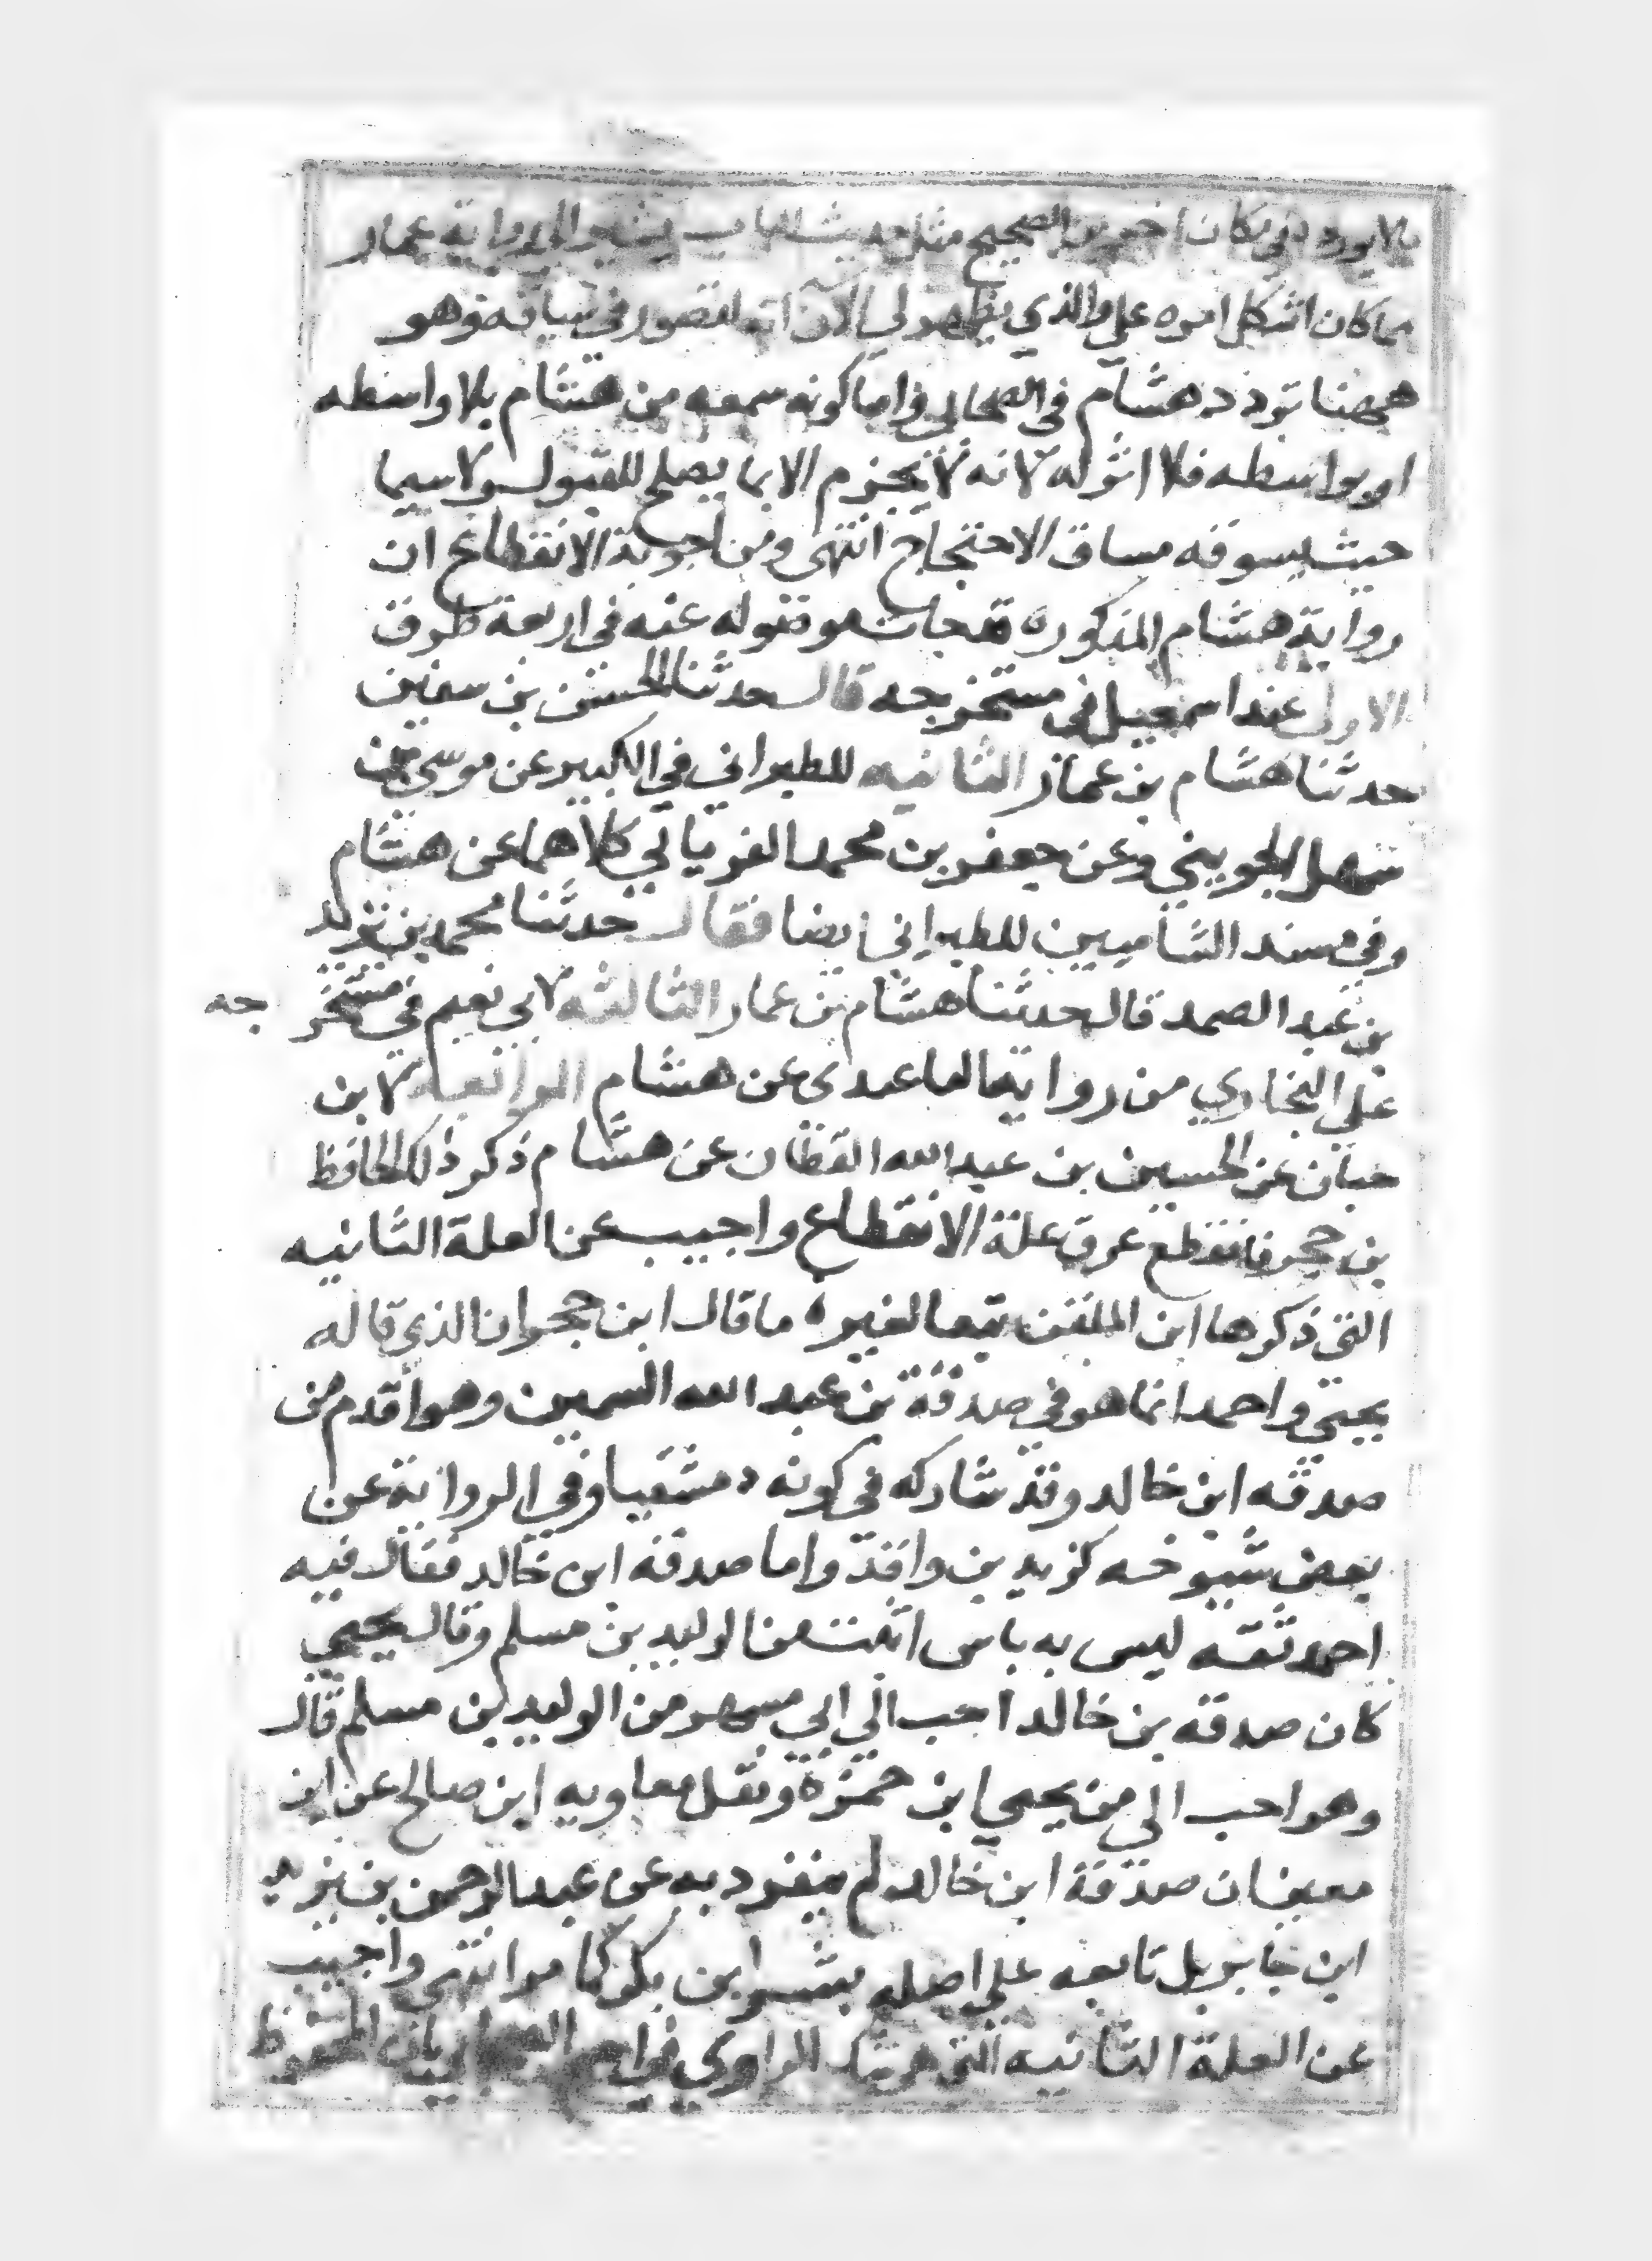 مالا يورده في مكان اخر من الصحيح مثل حديث الباب
مما كان اشكل امره علي والذي يظهر لي الآن انه لقصور في سياقه وهو
ههنا تردد هشام في الصحابي واما كونه سمعه من هشام بلا واسطه
او بواسطه فلا اثر له لانه لا يجزم الا بما يصلح للقبول ولاسيما
حيث يسوقه مساق الاحتجاج انتهى ومن اجوبة الانقطاع ان
رواية هشام المذكوره قد جات موصوله عنه في اربعة طرق
الاولى عند اسمعيل في مستخرجه قال حدثنا الحسن بن سفين
حدثنا هشام بن عمار الثانيه للطبراني في الكبير عن موسى بن
سهل الجويني وعن جعفر بن محمد الفريابي كلاهما عن هشام
وفي مسند الشاميين للطبراني ايضا فقال حدثنا محمد بن يزيد
بن عبد الصمد قال حدثنا هشام بن عمار الثالثه لابي نعيم في مستخرجه
علي البخاري من رواية عبدي عن هشام الرابعه لابن
حبان عن الحسين بن عبد الله القطان عن هشام ذكر ذلك الحافظ
بن حجر فانقطع عرق علة الانقطاع واجيب عن العلة الثانيه
التي ذكرها ابن الملقن تبعا لغيره ما قال ابن حجر ان الذي قاله
يحيى واحمد انما هو في صدقة بن عبد الله السمين وهو اقدم من
صدقه ابن خالد وقد شاركه في كونه دمشقيا وفي الرواية عن
بعض شيوخه كزيد بن واقد واما صدقه ابن خالد فقال فيه
احمد ثقه ليس به باس اثبت من الوليد بن مسلم وقال يحيى
كان صدقه بن خالد احب الي ابي مسهر من الوليد بن مسلم قال
وهو احب الي من يحيى ابن حمزة ونقل معاويه ابن صالح عن ابن
معين ان صدقة ابن خالد لم ينفرد به عن عبد الرحمن بن يزيد
ابن جابر بل تابعه علي اصله بشر ابن بكر كما مر انتهى واجيب
عن العلة الثانيه التي هي شك الراوي في اسم الصحابي بان المحفوظ